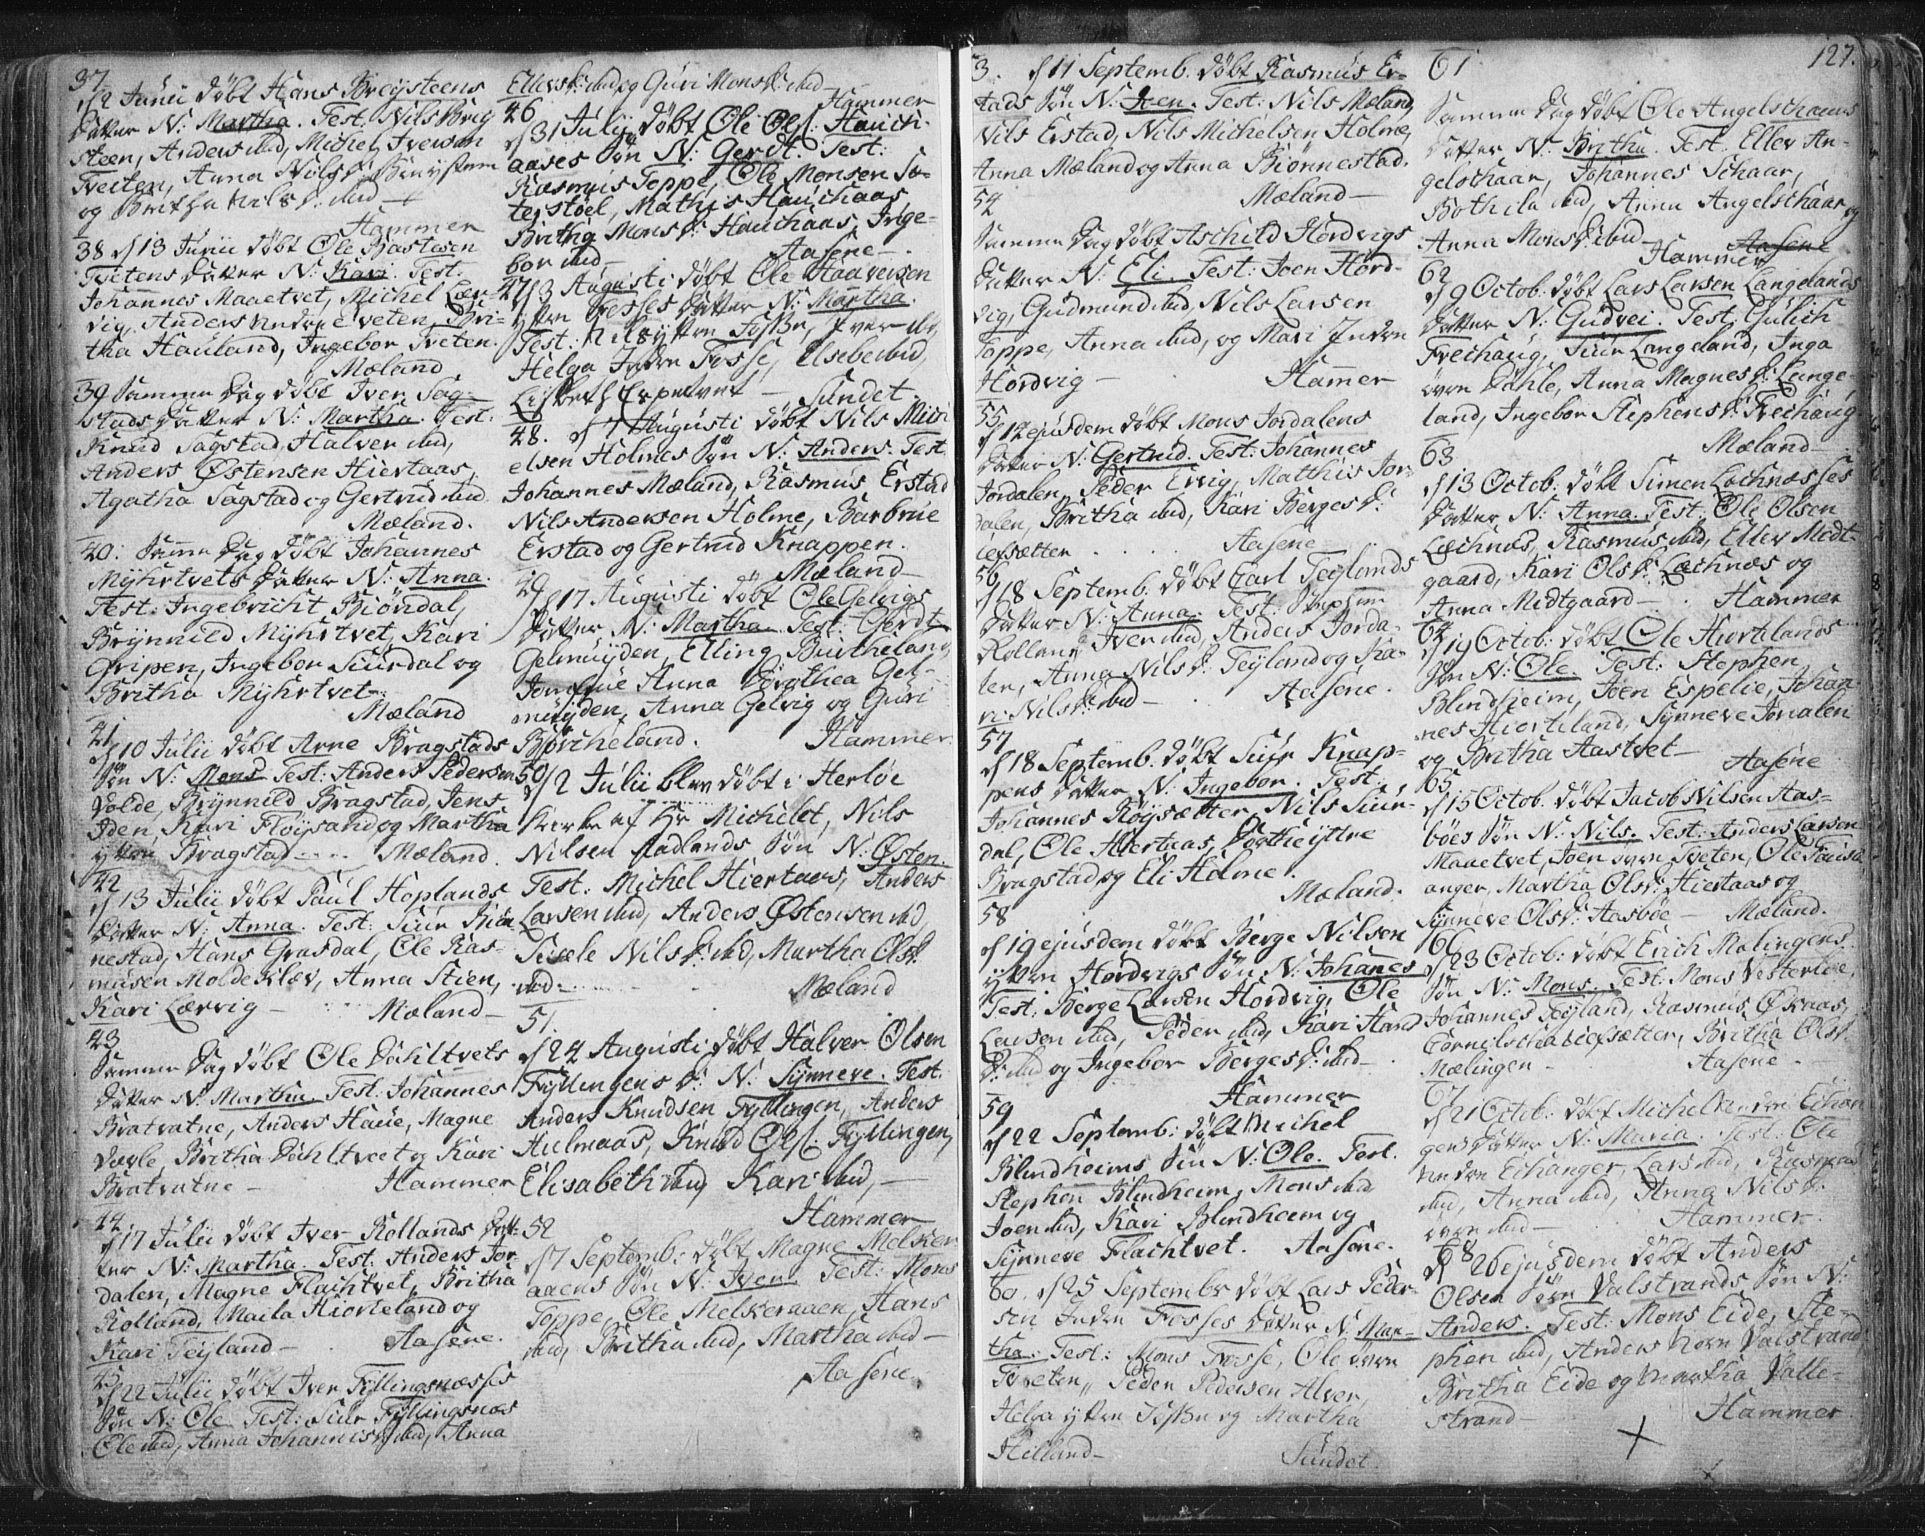 37
d 2 Junii døbt Hans Breÿsteens
datter N: Martha. Test. Nils Breÿ
steen, Anders ibid, Michel Iversen
Tveiten, Anna Nilsd:
og Britha Nilsd: ibid —
Hammer
38 d 13 Junii døbt Ole Bastesen
Tvitens datter N: Kari. Test.
Johannes Maaetvet, Michel Lær-
vig. Anders Nedre Tveten, Bri-
tha Hauland, Ingebor Tveten.
Mæland
39 Samme dag døbt Iver Sag-
stads datter N: Martha. Test:
Knud Sagstad, Halver ibid,
Anders Østensen Hiertaas,
Agatha Sagstad og Gertrud ibid.
Mæland.
40. Samme dag døbt Johannes
Mÿhrtvets datter N: Anna.
Test: Ingebricht Biöndal,
Brÿnnild Mÿhrtvet, Kari
Gripen, Ingebor Siurdal og
Britha Mÿhrtvet.
Mæland
41
d 10 Julii døbt Arne Bragstads
Søn N: Mons. Test: Anders Pedersen
Volde, Brÿnnild Bragstad, Jens
Iden, Kari Fløÿsand og Martha
ÿtter Bragstad .... Mæland.
42
d 13 Julii døbt Paul Hoplands
datter N: Anna. Test: Siur Biön
nestad, Hans Grasdal, Ole Ras-
musen Moldekleiv, Anna Stien,
Kari Lærvig — Mæland —
43
Samme dag døbt Ole Dahltvets
datter N: Martha. Test. Johannes
Bratvatne, Anders Haue, Magne
Britha Dahltveet og Kari
Bratvatne — Hammer
44
d 17 Julii døbt Iver Rollands dat-
ter N: Martha. Test: Anders Jor
dalen, Magne Flachtvet, Britha
Rolland, Maila Hiorteland og
Kari Teÿland — Aasene.
45
d 22 Julii døbt Iver Fÿllingsnæsses
Søn N: Ole. Test: Siur Fÿllingsnæs
Ole ibid, Anna Johannisd: ibid, Anna
Ellersd: ibid og Guri Monsd: ibid —
Hammer
46
d 31 Julij døbt Ole Ols: Hauch-
aases Søn N: Gerdt. Test:
Rasmus Toppe, Ole Monsen Sæ-
terstøel, Mathis Hauchaas,
Britha Monsd: Hauchaas, Inge-
bor ibid — Aasene —
47 d 3 Augusti døbt Ole Haaversen
ÿtter Fosses datter N: Martha.
Test: Nils ÿtter Fosse, Iver ibid,
Helga Indre Fosse, Elsebe ibid,
Lisbeth Espetvet — Sundet.
48. d 7 Augusti døbt Nils Mich
elsen Holmes Søn N: Anders. Test
Johannes Mæland, Rasmus Erstad
Nils Andersen Holme, Barbrue
Erstad og Gertrud Knappen.
Mæland —
49
d 17 Augusti døbt Ole Gelvigs
datter N: Martha. Test: Gerdt
Gelmuÿden, Elling Burcheland,
Jomfrue Anna Dorothea Gel-
muÿden, Anna Gelvig og Guri
Biörcheland. Hammer.
50 d 2 Julii blev døbt i Herløe
Kirke af Hr Michelet, Nils
Nilsen Radlands Søn N: Østen.
Test: Michel Hiertaas, Anders
Larsen ibid, Anders Østensen ibid,
Sisele Nilsd: ibid, Martha Olsd:
ibid. Mæland
51.
d 24 Augusti døbt Halver Olsen
Fÿllingens d: N: Sÿnneve. Test.
Anders Knudsen Fÿllingen, Anders
Hulmaas, Knud Ols: Fÿllingen,
Elisabeth ibid, Kari ibid, —
Hammer
52
d 7 Septemb: døbt Magne Melker
aaens Søn N: Iver. Test: Mons
Toppe, Ole Melkeraaen, Hans
ibid, Britha ibid, Martha ibid —
Aasene
3. d 11 Septemb. døbt Rasmus Er-
stads Søn N: Joen. Test: Nils Mæland,
Nils Erstad, Nils Michelsen Holme,
Anna Mæland og Anna Biönnestad.
54 Mæland —
Samme dag døbt Aschild Hordvigs
datter N: Eli. Test: Joen Hord-
vig, Gudmund ibid, Nils Larsen
Toppe, Anna ibid, og Mari Indre
Hordvig — Hamer
55.
d 12 ejusdem døbt Mons Jordalens
datter N: Gertrud. Test: Johannes
Jordalen, Peder Ervig, Matthis Jor
dalen, Britha ibid, Kari Bergesd:
Lefsetter Aasene
56
d 18 Septemb. døbt Carl Teÿlands
datter N: Anna. Test: Stephen
Rolland, Iver ibid, Anders Jorda-
len, Anna Nilsd: Teÿland og Ka-
ri Nilsd: ibid — Aasene.
57
d 18 Septemb. døbt Siur Knap-
pens datter N: Ingebor. Test:
Johannes Røÿsætter, Nils Siur-
dal, Ole Hiertaas, Dorthe ÿttre
Bragstad og Eli Holme.
Mæland.
58
d 19 ejusdem døbt Berge Nilsen
ÿtter Hordvigs Søn N: Johannes
Test: Berge Larsen Hordvig, Ole
Larsen ibid, Peder ibid, Kari Hans
d: ibid og Ingebor Bergesd: ibid —
Hammer
59
d 22 Septemb: døbt Michel
Blindheims Søn N: Ole. Test.
Stephen Blindheim, Mons ibid
Joen ibid, Kari Blindheim og
Sÿnneve Flachtvet. Aasene.
60. d 25 Septembr døbt Lars Peder-
sen Indre Fosses datter N: Mar-
tha. Test: Mons Fosse, Ole övre
Tveten, Peder Pedersen Alver,
Helga ÿtter Fosse og Martha
Hilland — Sundet.
127.
61
Samme dag døbt Ole Angelschaars
datter N: Britha. Test. Eller An-
gelschaar, Johannes Schaar,
Bothila ibid, Anna Angelschaar og
Anna Monsd: ibid — Aasene
Hammer
62
d 9 Octob. døbt Lars Larsen Langelands
datter N: Gudvei. Test. Gulich
Frechaug, Siur Langeland, Inga
övre Dahle, Anna Magnesd: Lange-
land, Ingebor Stephensd: Frechaug
Mæland
63
d 13 Octob: døbt Simen Lechnæsses
datter N: Anna. Test. Ole Olsen
Lechnæs, Rasmus ibid, Eller Midt-
gaard, Kari Olsd: Lechnæs og
Anna Midtgaard — Hammer
64
d 19 Octob: døbt Ole Hiortelands
Søn N: Ole. Test: Stephen
Blindheim, Joen Espelie, Johan-
nes Hiorteland, Sÿnneve Jordalen
og Britha Aastvet — Aasene
65
d 15 Octob. døbt Jacob Nilsen Aas-
böes Søn N: Nils. Test: Anders Larsen
Maaetvet, Joen övre Tveten, Ole Fauska
anger, Martha Olsd: Hiertaas og
Sÿnneve Olsd: Aasböe — Mæland.
66
d 23 Octob: døbt Erich Mælingens
Søn N: Mons. Test: Mons Vesterlie,
Johannes Teÿland, Rasmus Øvraas,
Cornelscha Lefsætter, Britha Olsd:
Mælingen — Aasene.
67
d 21 Octob: døbt Michel Nedre Eichan
gers datter N: Maria. Test. Ole
Nedre Eichanger, Lars ibid, Rasmus
ibid, Anna ibid, Anna Nilsd:
övre ibid — Hammer.
68
d 26 ejusdem døbt Anders
Olsen Søre Valstrands Søn N:
Anders. Test: Mons Eide, Ste-
phen ibid, Anders Nore Valstrand,
Britha Eide og Martha Valle-
strand — Hammer